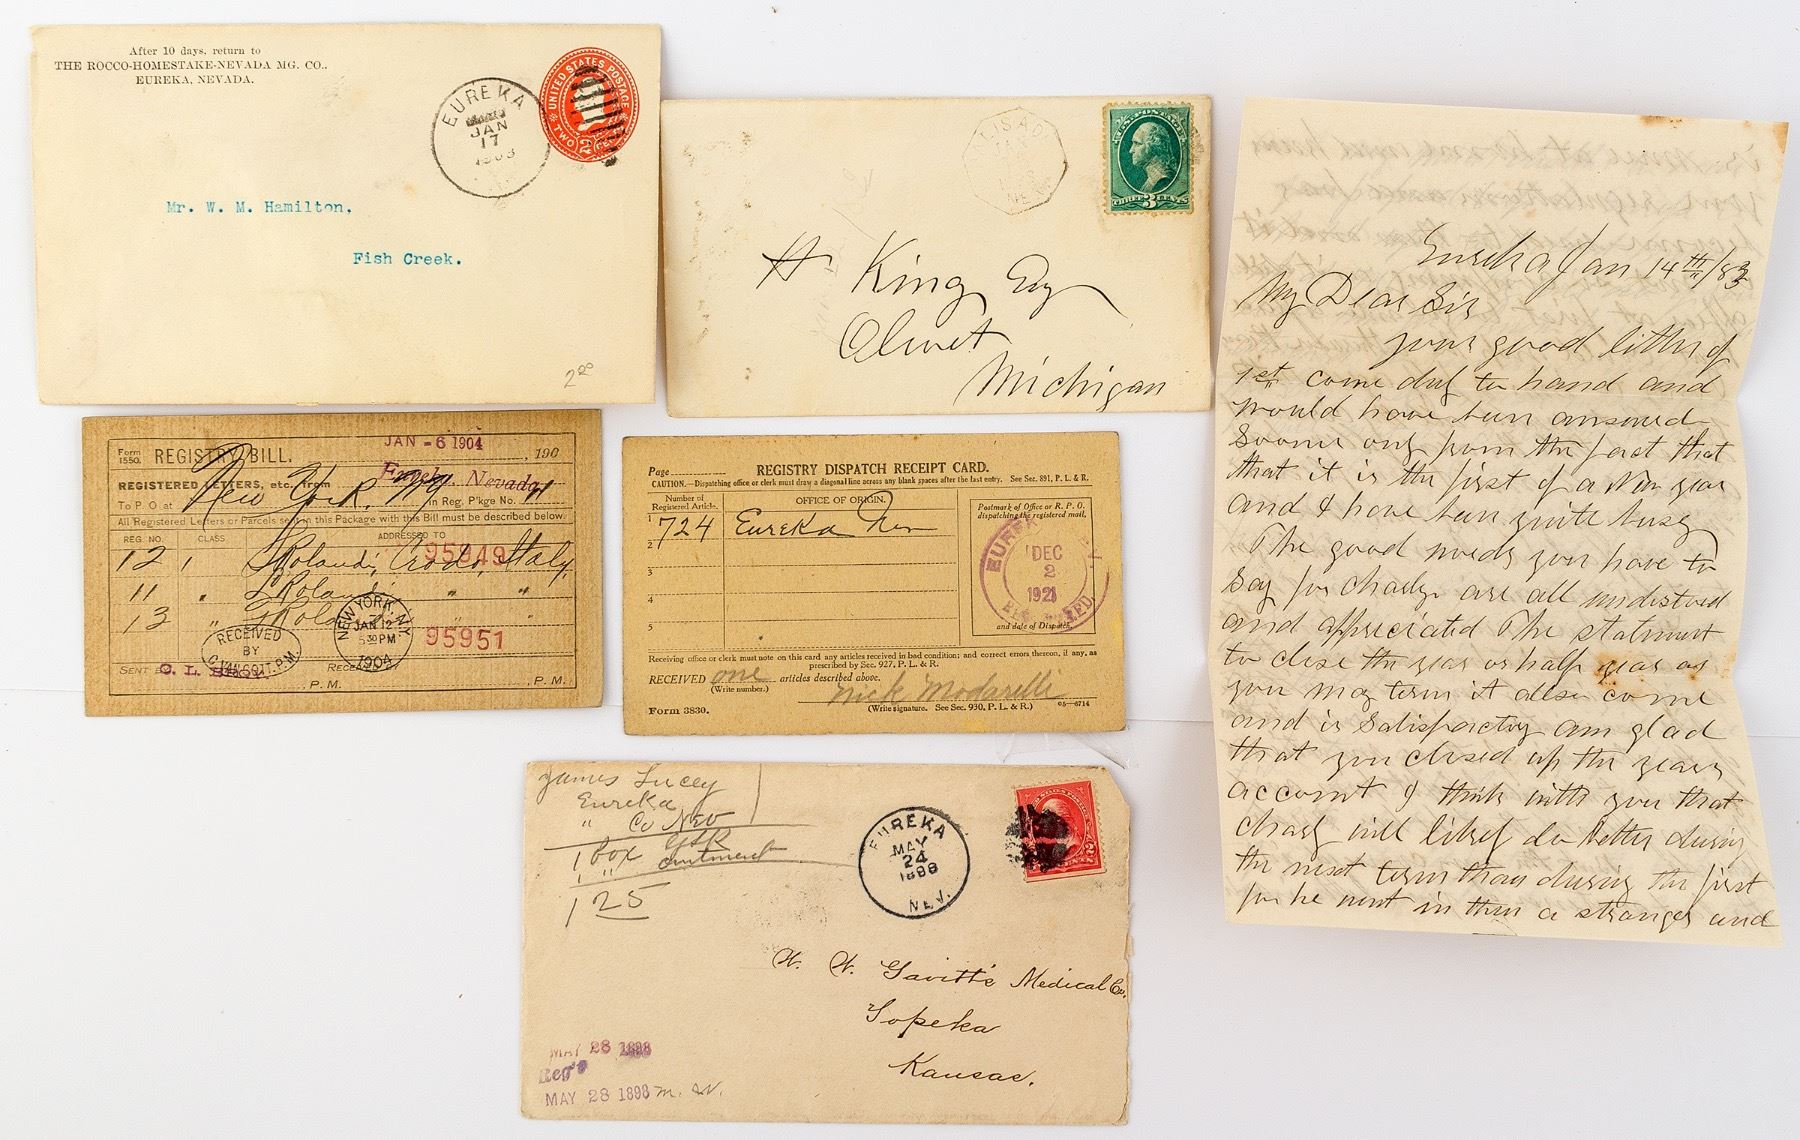 After 10 days, return to
THE ROCCO-HOMESTAKE-NEVADA MG. CO.,
EUREKA, NEVADA.
EUREKA
JAN
17
UNITED STATES POSTAGE
TWO 2 CENTS
Mr. W. M. Hamilton,
Fish Creek.
2 00
U.S. POSTAGE
THREE 3 CENTS
H King Esq
Olivet
Michigan
Eureka Jan 14th/83
My Dear Sir
your good letter of
1st come duly to hand and
would have been answered
Sooner only from the fact that
that it is the first of a New year
and I have been quite busy
The good words you have to
Say for Charly are all understood
and appreciated The statement
to close the year or half year as
you may term it also come
and is Satisfactory am glad
that you closed up the years
account I think with you that
Charly will likely do better during
the next term than during the first
for he went in then a stranger and
Form 1550.
REGISTRY BILL.
JAN -6 1904
, 190
REGISTERED LETTERS, etc., from
Eureka, Nevada
To P. O. at
New York, NY
in Reg. P'kge No. 4
All Registered Letters or Parcels sent in this Package with this Bill must be described below.
REG. NO. CLASS. ADDRESSED TO
12 1 Rolandi, Crodo, Italy,
95949
11 " Rolandi " "
13 " Rolandi " "
95951
RECEIVED
BY
NEW YORK, N.Y.
JAN 12
5 30 PM
1904
SENT
C. L.
P. M.
P. M.
Page
REGISTRY DISPATCH RECEIPT CARD.
CAUTION.—Dispatching office or clerk must draw a diagonal line across any blank spaces after the last entry. See Sec. 891, P. L. & R.
Number of Registered Article.
OFFICE OF ORIGIN.
Postmark of Office or R. P. O.
dispatching the registered mail,
1 724 Eureka Nev
2
3
4
5
EUREKA
DEC
2
1921
REGISTERED
and date of Dispatch.
Receiving office or clerk must note on this card any articles received in bad condition; and correct errors thereon, if any, as
prescribed by Sec. 927, P. L. & R.
RECEIVED one articles described above.
(Write number.)
Nick Modarelli
(Write signature. See Sec. 930, P. L. & R.)
Form 3830.
05—6714
James Lucey
Eureka
" Co Nev
1 box
1 " ointment
1 25
EUREKA
MAY
24
1898
NEV.
W. W. Gavitt's Medical Co.
Topeka
Kansas.
MAY 28 1898
Reg'd
MAY 28 1898 m. W.